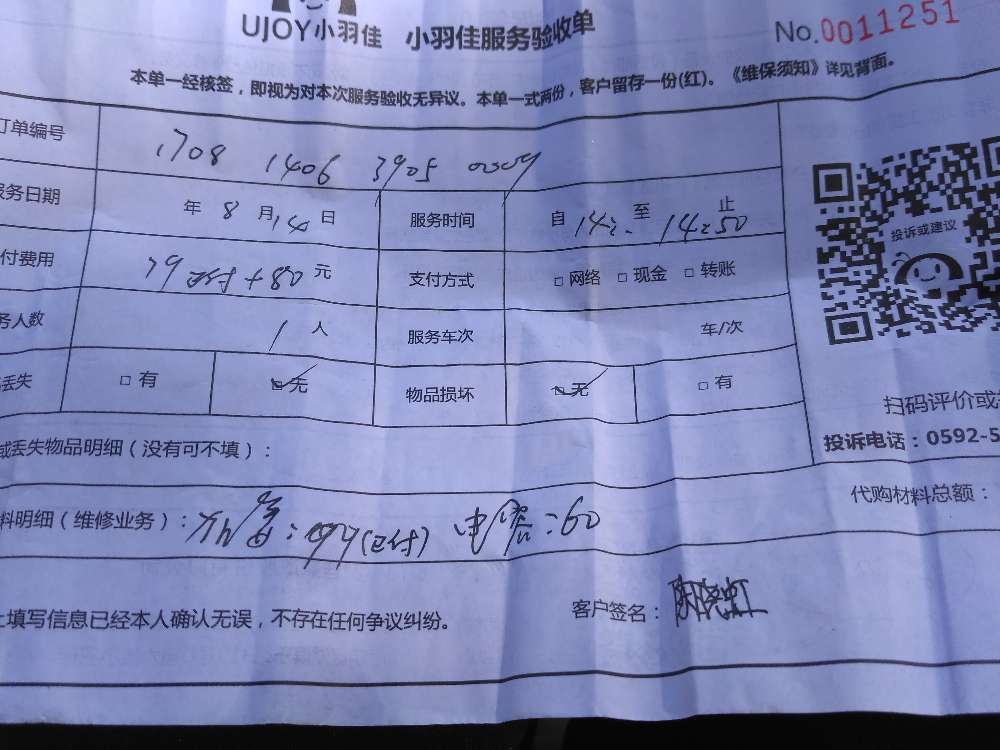 UJOY小羽佳 小羽佳服务验收单 No.0011251
本单一经核签，即视为对本次服务验收无异议。本单一式两份，客户留存一份(红)。《维保须知》详见背面。
订单编号 1708 1406 3905 0009
服务日期 年 8 月 14 日 服务时间 自 14: 至 14:50 止
付费用 79 +80 元 支付方式 □网络 □现金 □转账
务人数 1 人 服务车次 车/次
丢失 □有 □无 物品损坏 □无 □有
投诉或建议
扫码评价或
投诉电话：0592-5
或丢失物品明细（没有可不填）：
代购材料总额：
料明细（维修业务）： (已付) 电容：60
上填写信息已经本人确认无误，不存在任何争议纠纷。 客户签名：